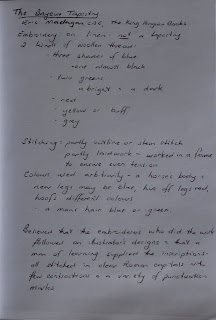 The Bayeux Tapestry
Eric Maclagan CBE, The King Penguin Books
Embroidery on linen - not a tapestry
2 kinds of woollen thread:
- three shades of blue
- one almost black
- two greens
a bright + a dark
- red
- yellow or buff
- grey
Stitching: partly outline or stem stitch
partly laidwork - worked in a frame
to ensure even tension
Colours used arbitrarily - a horses body =
near legs may be blue, two off legs red,
hoofs different colours
- a mans hair blue or green.
Believed that the embroiderers who did the work
followed an illustrator's designs + that a
man of learning supplied the inscriptions -
all stitched in clear Roman capitals with
few contractions + a variety of punctuation
marks